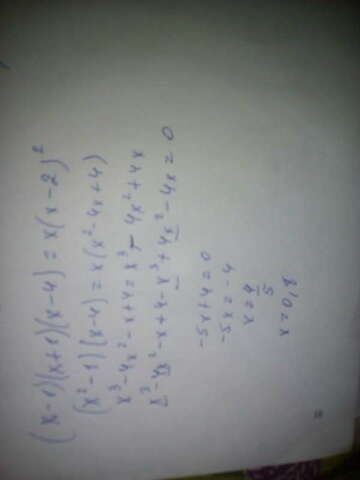 (x-1)(x+1)(x-4) = x(x-2)²
(x²-1)(x-4) = x(x²-4x+4)
x³-4x²-x+4 = x³-4x²+4x
x³-4x²-x+4-x³+4x²-4x=0
-5x+4=0
-5x=-4
x=4/5
x=0,8